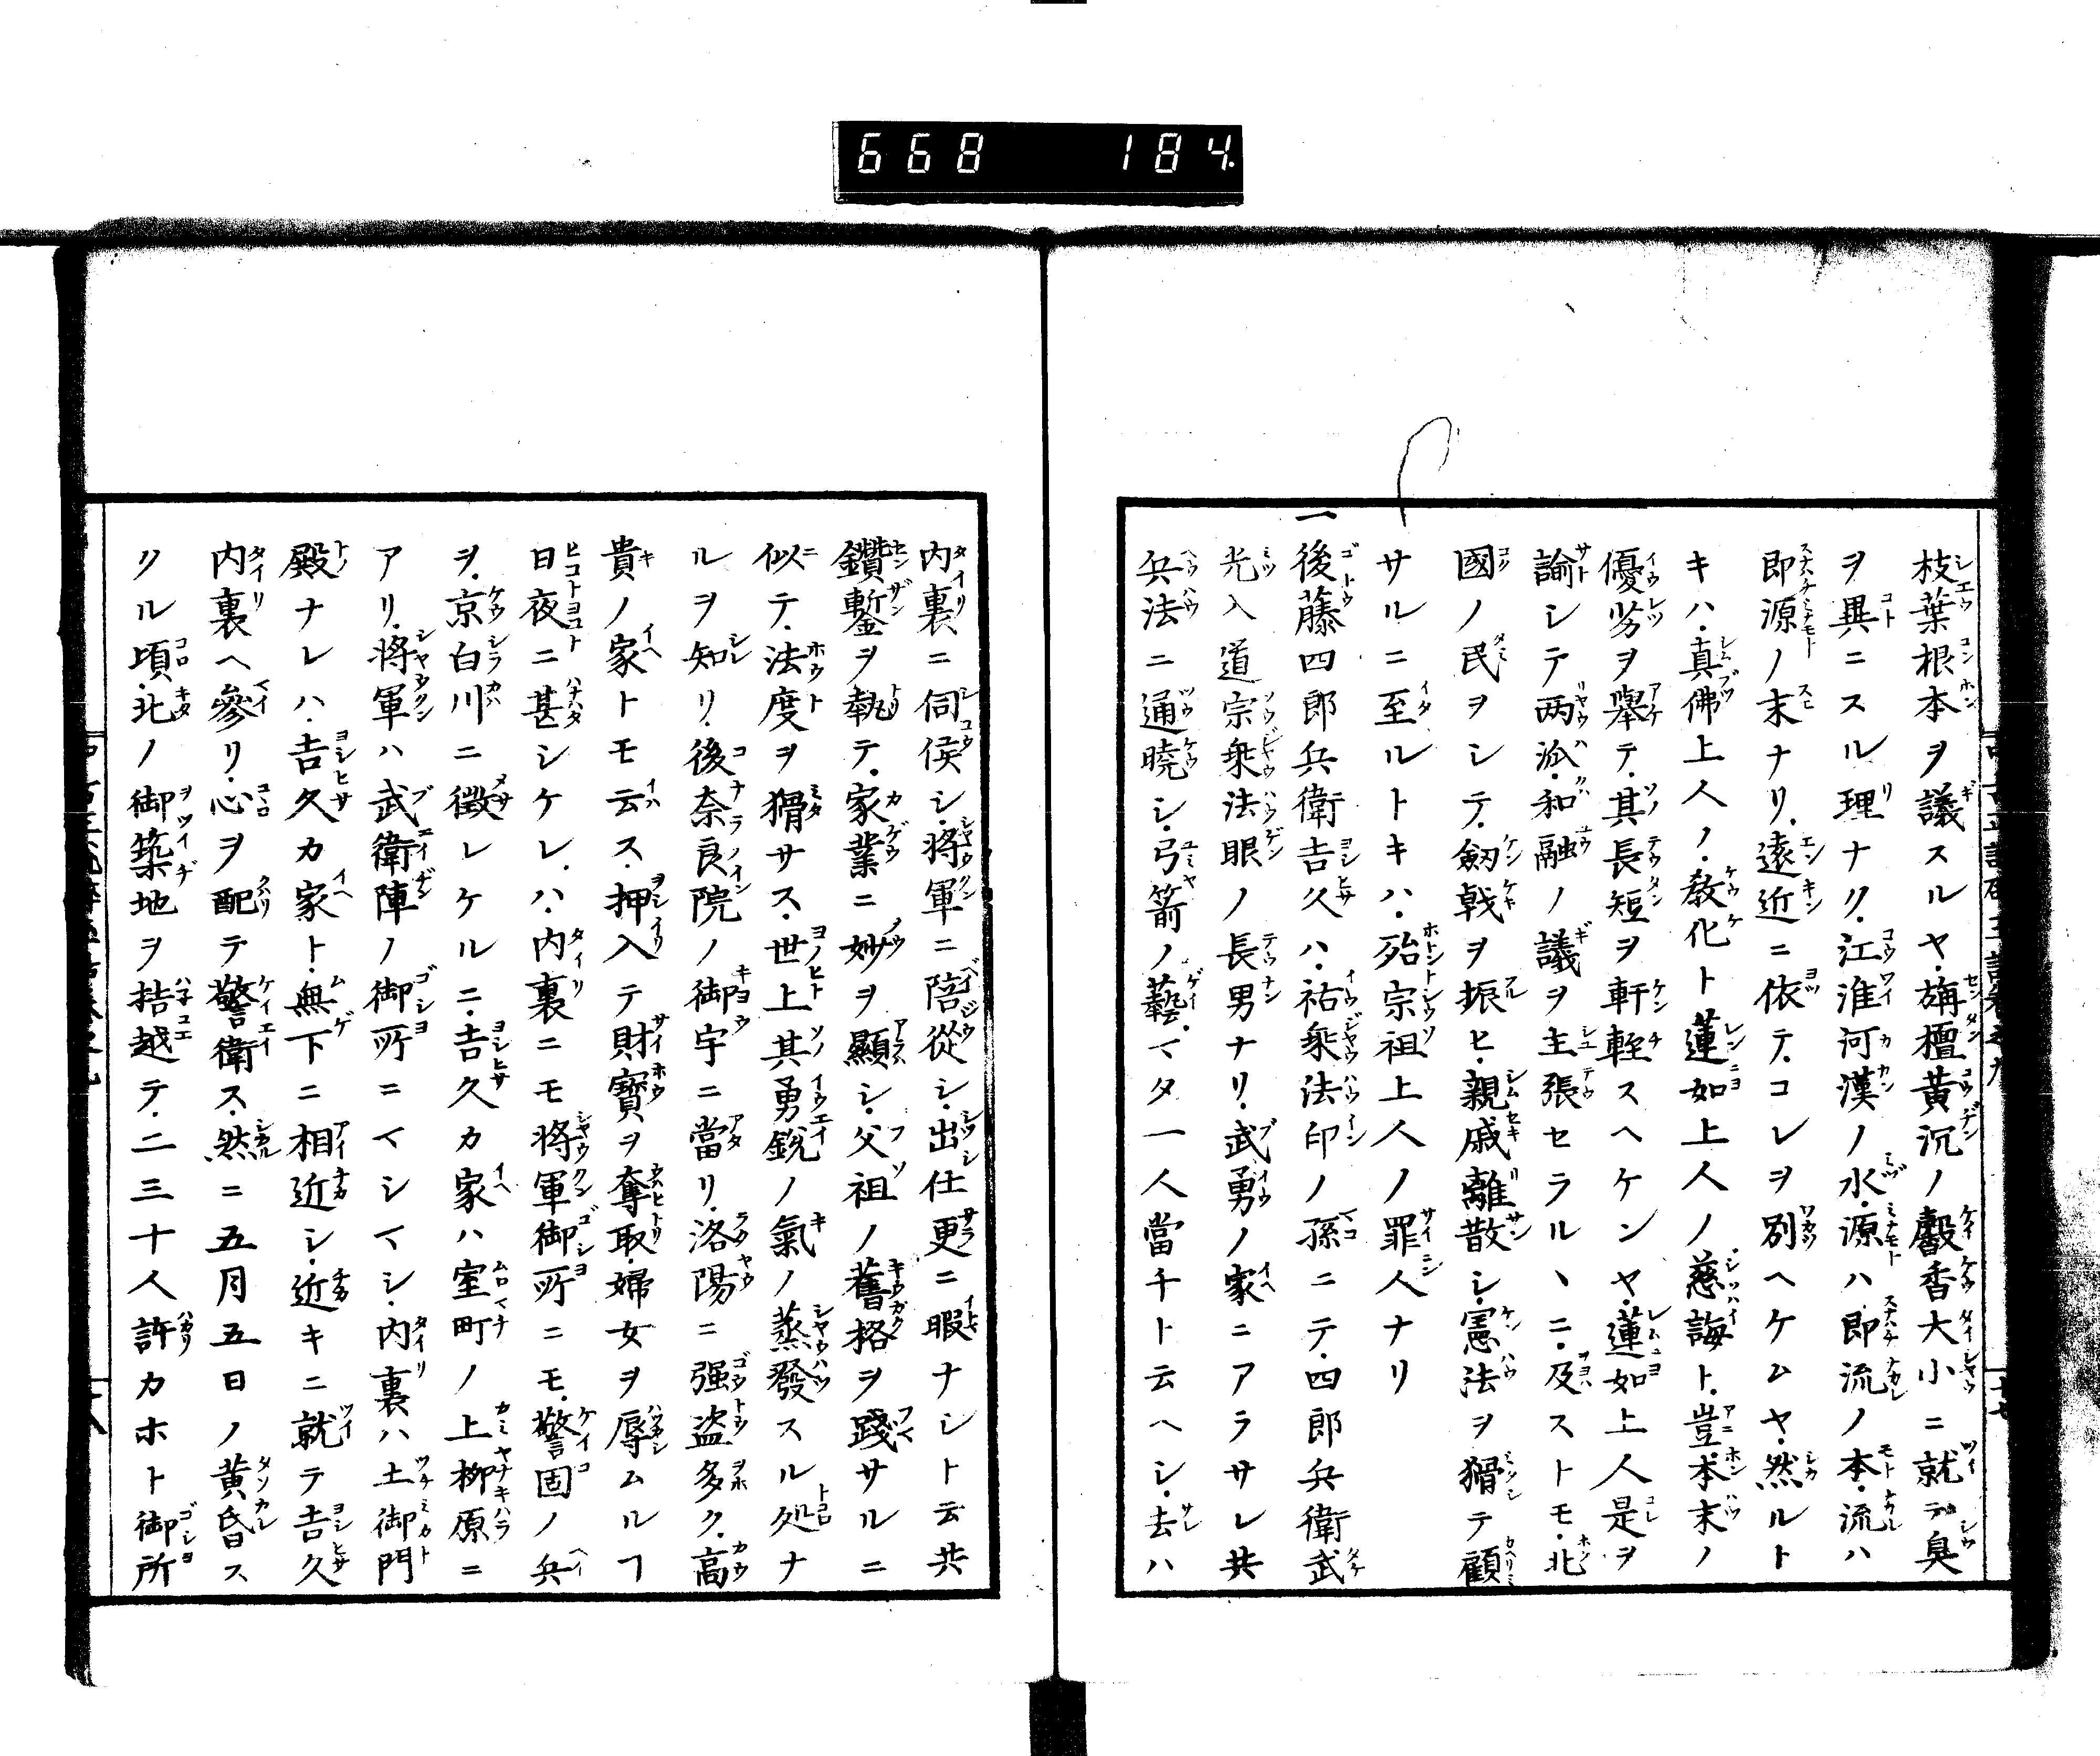 668 184
枝葉根本ヲ議スルヤ栴檀黄沉ノ馨香大小ニ就テ臭
ヲ異ニスル理ナリ江淮河漢ノ水源ハ即流ノ本流ハ
即源ノ末ナリ遠近ニ依テコレヲ別ヘケムヤ然ルト
キハ真佛上人ノ教化ト蓮如上人ノ慈誨ト豈本末ノ
優劣ヲ舉テ其長短ヲ軒輊スヘケンヤ蓮如上人是ヲ
諭シテ両派和融ノ議ヲ主張セラルヽニ及ストモ北
國ノ民ヲシテ劔戟ヲ振ヒ親戚離散シ憲法ヲ猾テ顧
サルニ至ルトキハ殆宗祖上人ノ罪人ナリ
一後藤四郎兵衛吉久ハ祐乗法印ノ孫ニテ四郎兵衛武
光入道宗乗法眼ノ長男ナリ武勇ノ家ニアラサレ共
兵法ニ通曉シ弓箭ノ藝マタ一人當千ト云ヘシ去ハ
内裏ニ伺侯シ將軍ニ陪從シ出仕更ニ暇ナシト云共
鑽鏨ヲ執テ家業ニ妙ヲ顯シ父祖ノ舊格ヲ踐サルニ
似テ法度ヲ猾サス世上其勇鋭ノ氣ノ蒸發スル処ナ
ルヲ知リ後奈良院ノ御宇ニ當リ洛陽ニ强盗多ク高
貴ノ家トモ云ス押入テ財寶ヲ奪取婦女ヲ辱ムルヿ
日夜ニ甚シケレハ内裏ニモ将軍御所ニモ警固ノ兵
ヲ京白川ニ徴レケルニ吉久カ家ハ室町ノ上柳原ニ
アリ将軍ハ武衛陣ノ御所ニイマシ内裏ハ土御門
殿ナレハ吉久カ家ト無下ニ相近シ近キニ就テ吉久
内裏へ參リ心ヲ配テ警衛ス然ニ五月五日ノ黄昏ス
リル頃北ノ御築地ヲ拮越テ二三十人許カホト御所